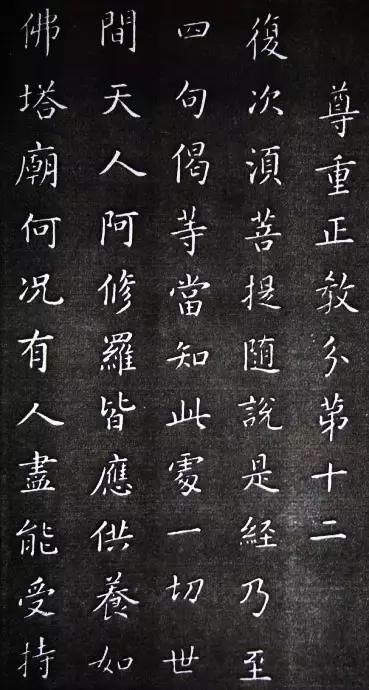 尊重正教分第十二
復次須菩提隨說是経乃至
四句偈等當知此處一切世
間天人阿修羅皆應供養如
佛塔廟何况有人盡能受持